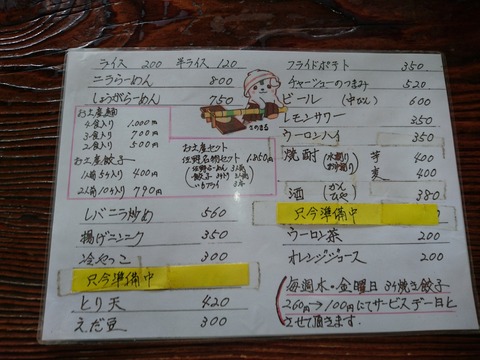 ライス 200 半ライス 120
ニララーめん 800
しょうがらーめん 750
お土産麺
4食入り 1,000円
3食入り 700円
2食入り 500円
お土産餃子
1人前5ケ入り 400円
2人前10ケ入り 790円
さのまる
お土産セット
佐野名物セット 1,250円
佐野らーめん 2人前
餃子
いもフライ
レバニラ炒め 560
揚げニンニク 350
冷やっこ 300
只今準備中
とり天 420
えだ豆 300
フライドポテト 350
チャーシューのつまみ 520
ビール (中びん) 600
レモンサワー 350
ウーロンハイ 350
焼酎 (水割り お湯割り) 芋 400
麦 400
酒 (かん ひや) 380
只今準備中
ウーロン茶 200
オレンジジュース 200
毎週水・金曜日 3ケ焼き餃子
260円→100円にてサービスデー日と
させて頂きます。